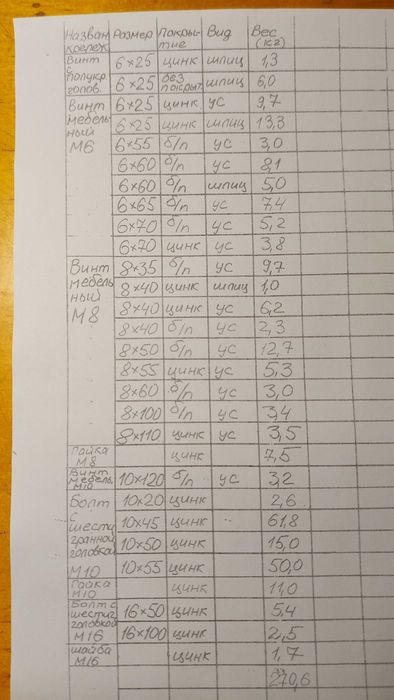 Назван. крепеж Размер Покрытие Вид Вес (кг)
Винт с полукр. голов. 6×25 цинк шлиц 1,3
6×25 без покрыт. шлиц 6,0
Винт мебельный М6 6×25 цинк ус 9,7
6×25 цинк шлиц 13,3
6×55 б/п ус 3,0
6×60 б/п ус 8,1
6×60 б/п шлиц 5,0
6×65 б/п ус 7,4
6×70 б/п ус 5,2
6×70 цинк ус 3,8
Винт мебельный М8 8×35 б/п ус 9,7
8×40 цинк шлиц 1,0
8×40 цинк ус 6,2
8×40 б/п ус 2,3
8×50 б/п ус 12,7
8×55 цинк ус 5,3
8×60 б/п ус 3,0
8×100 б/п ус 3,4
8×110 цинк ус 3,5
Гайка М8 цинк 7,5
Винт мебель. М10 10×120 б/п ус 3,2
Болт с шестигранной головкой М10 10×20 цинк 2,6
10×45 цинк 61,8
10×50 цинк 15,0
10×55 цинк 50,0
Гайка М10 цинк 11,0
Болт с шестиг. головкой М16 16×50 цинк 5,4
16×100 цинк 2,5
шайба М16 цинк 1,7
270,6